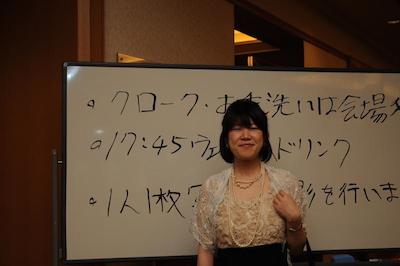 。クローク・お手洗いは会場外
。17:45ウェ ドリンク
。1人1枚 を行いま